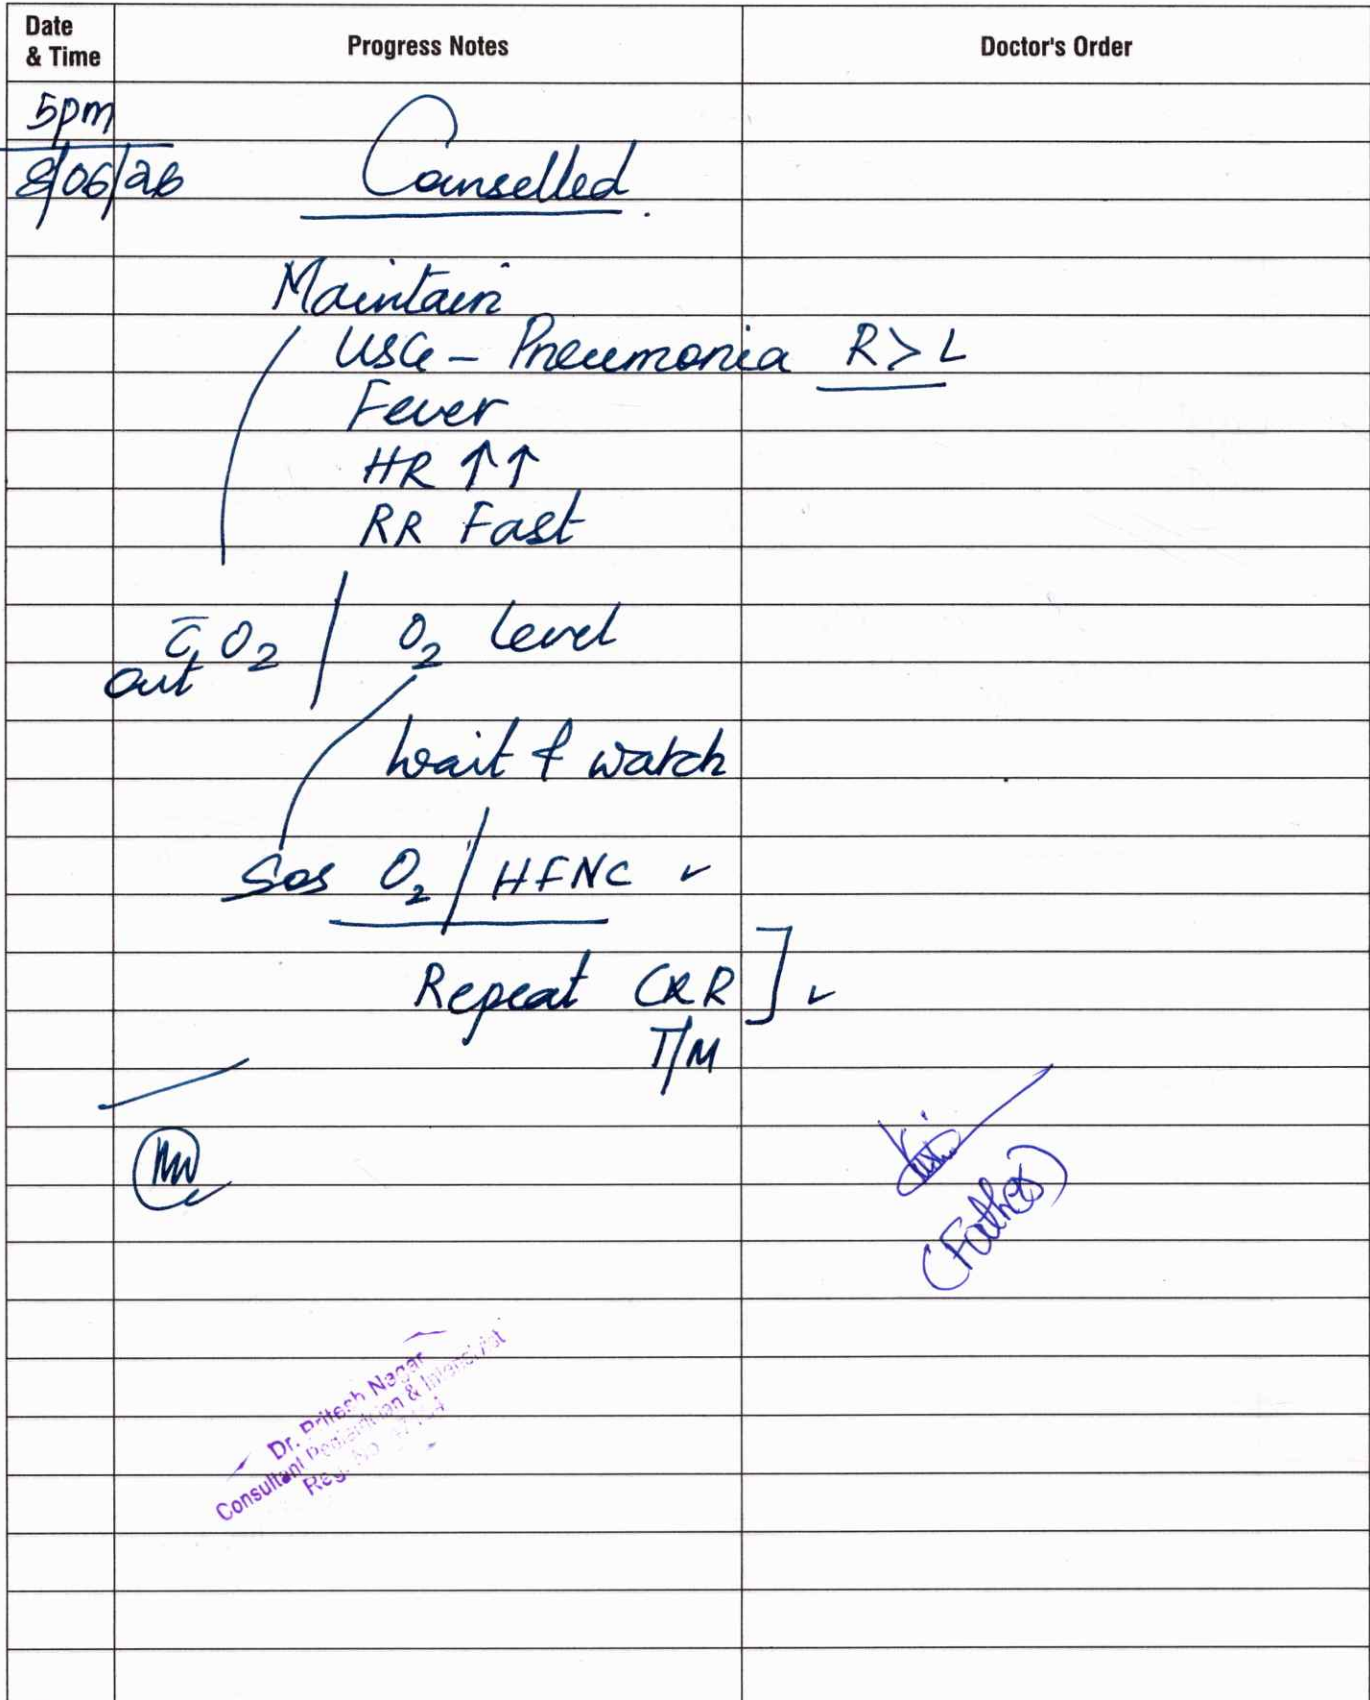 Date & Time
Progress Notes
Doctor's Order
5pm
8/06/26
Counselled.
Maintain
USG - Pneumonia R > L
Fever
HR ↑↑
RR Fast
c̄ O2 / O2 level
out
wait & watch
Sos O2 / HFNC ✓
Repeat CXR ] ✓
T/M
(Father)
Dr. Pritesh Nagar
Consultant Pediatrician & Intensivist
Reg. No.